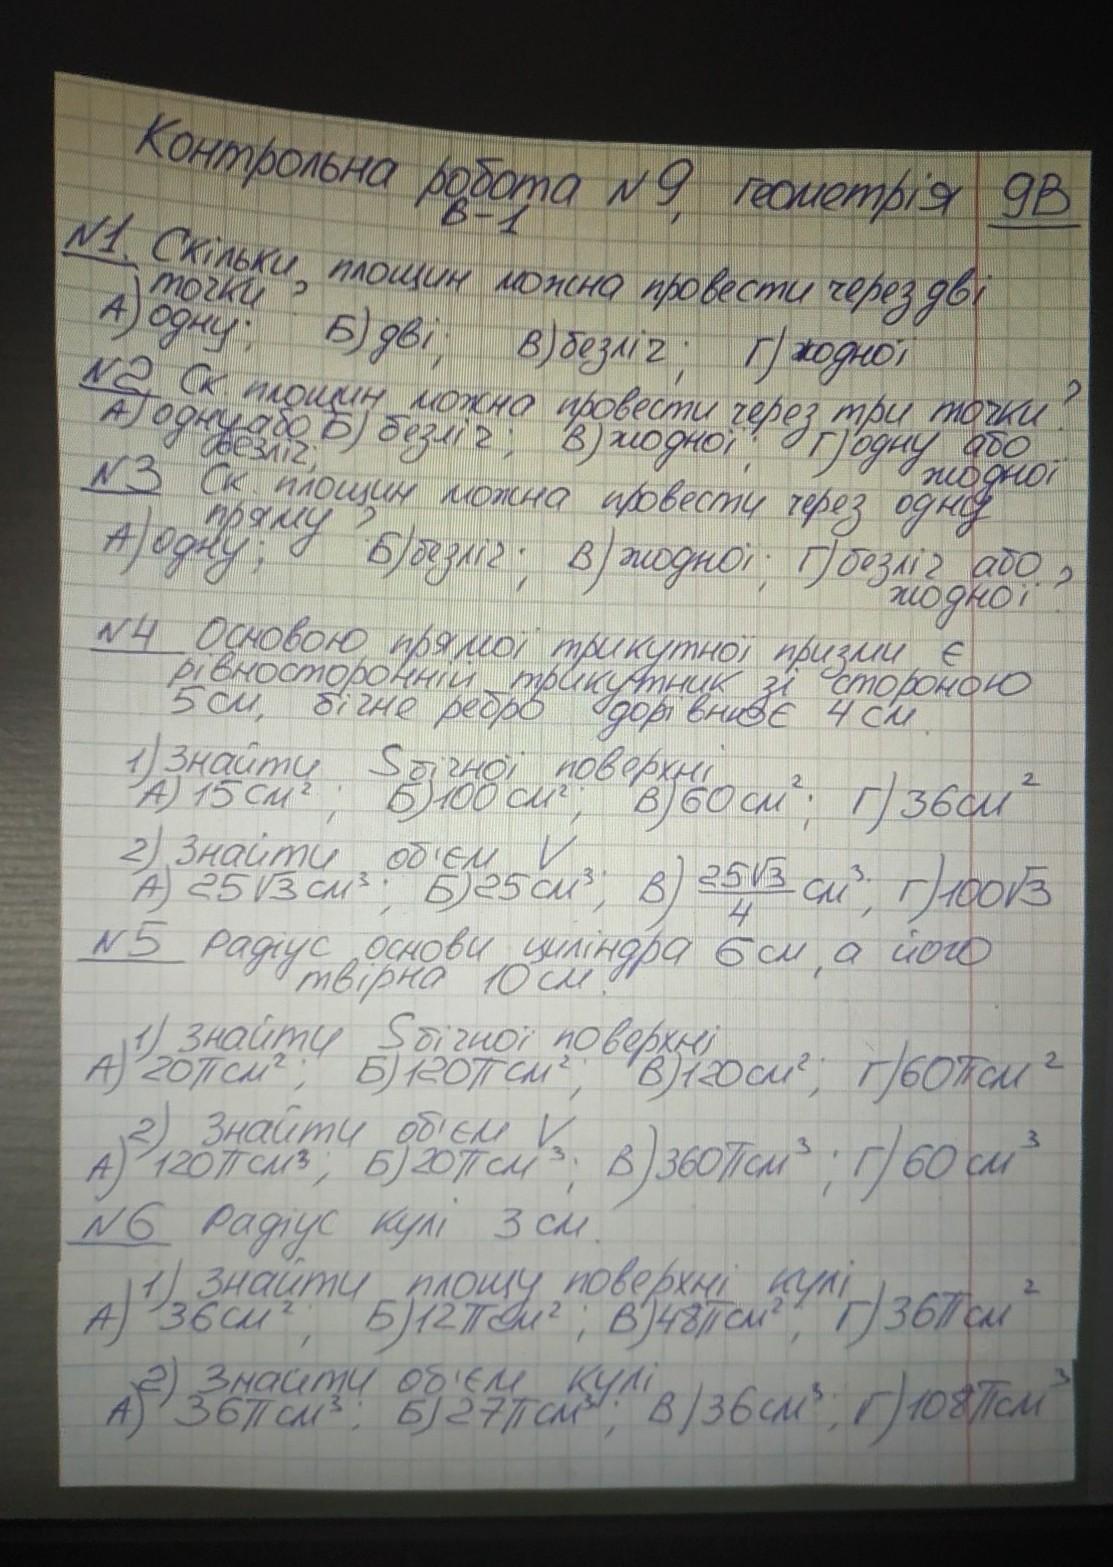 Контрольна робота №9, геометрія 9В
В-1
№1. Скільки площин можна провести через дві
точки?
А) одну; Б) дві; В) безліч; Г) жодної
№2 Ск. площин можна провести через три точки?
А) одну або Б) безліч; В) жодної; Г) одну або
безліч; жодної
№3 Ск. площин можна провести через одну
пряму?
А) одну; Б) безліч; В) жодної; Г) безліч або
жодної?
№4 Основою прямої трикутної призми є
рівносторонній трикутник зі стороною
5 см, бічне ребро дорівнює 4 см.
1) Знайти Sбічної поверхні
А) 15 см²; Б) 100 см²; В) 60 см²; Г) 36 см²
2) Знайти об'єм V
А) 25√3 см³; Б) 25 см³; В) 25√3/4 см³; Г) 100√3
№5 Радіус основи циліндра 6 см, а його
твірна 10 см.
1) Знайти Sбічної поверхні
А) 20π см²; Б) 120π см²; В) 120 см²; Г) 60π см²
2) Знайти об'єм V
А) 120π см³; Б) 20π см³; В) 360π см³; Г) 60 см³
№6 Радіус кулі 3 см.
1) Знайти площу поверхні кулі
А) 36 см²; Б) 12π см²; В) 48π см²; Г) 36π см²
2) Знайти об'єм кулі
А) 36π см³; Б) 27π см³; В) 36 см³; Г) 108π см³